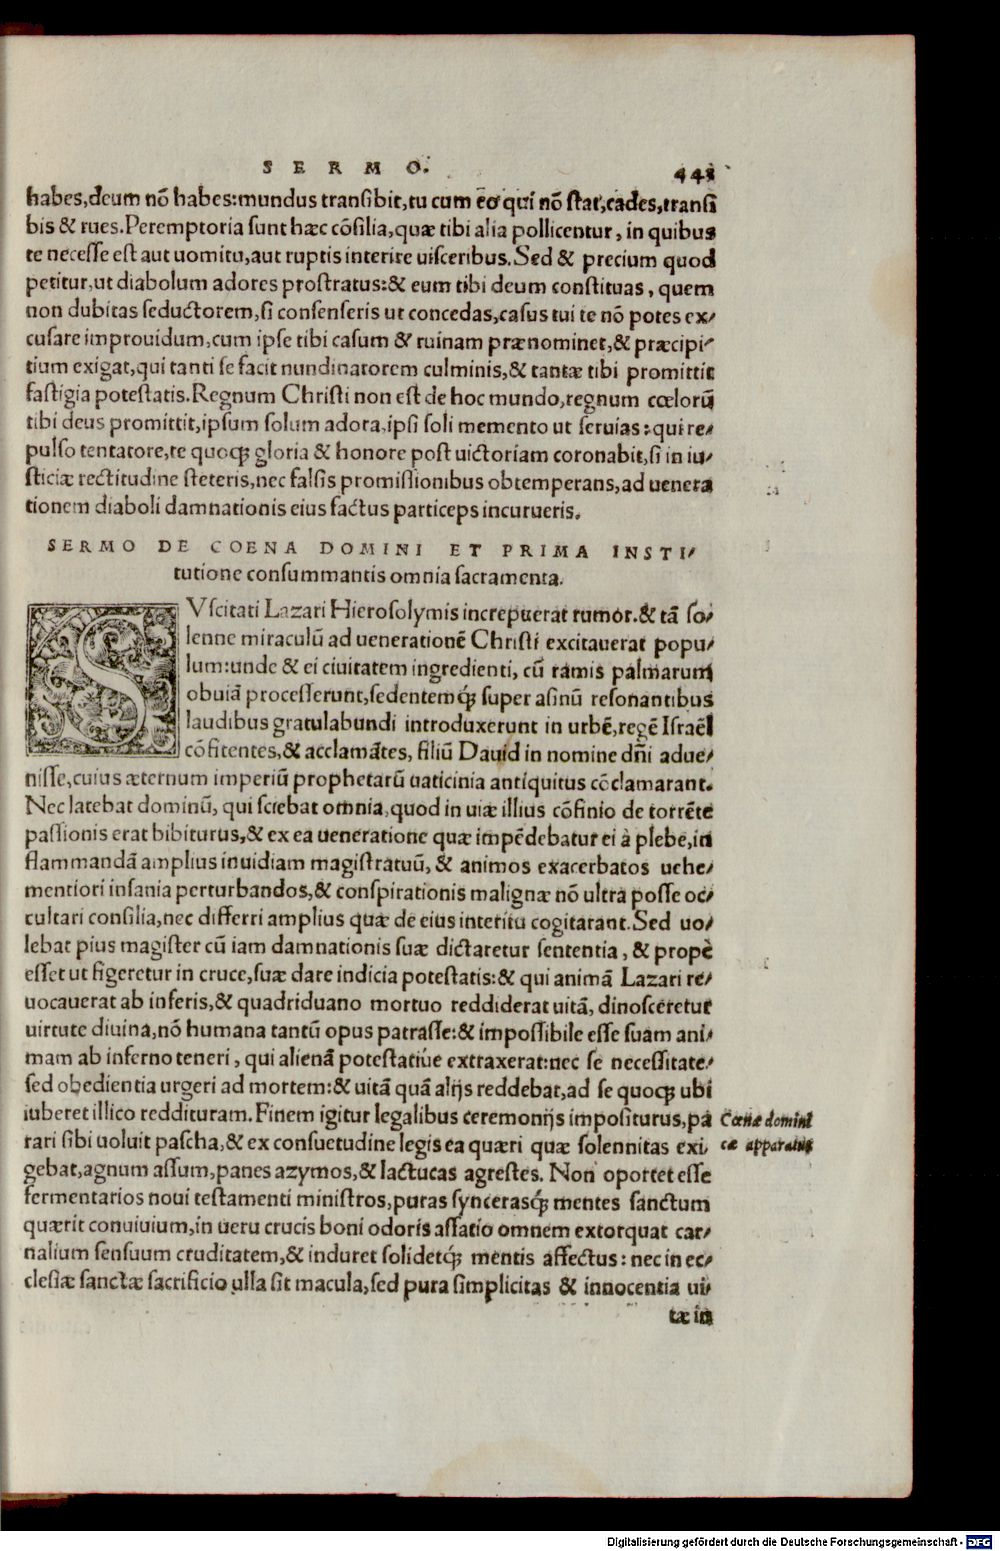 SERMO. 441
habes,deum nō habes:mundus transibit,tu cum eo qui nō stat,cades,transi
bis & rues.Peremptoria sunt hæc cōsilia,quæ tibi alia pollicentur, in quibus
te necesse est aut uomitu,aut ruptis interire uisceribus.Sed & precium quod
petitur,ut diabolum adores prostratus:& eum tibi deum constituas, quem
non dubitas seductorem,si consenseris ut concedas,casus tui te nō potes ex/
cusare improuidum,cum ipse tibi casum & ruinam prænominet,& præcipi/
tium exigat,qui tanti se facit nundinatorem culminis,& tantæ tibi promittit
fastigia potestatis.Regnum Christi non est de hoc mundo,regnum cœlorū
tibi deus promittit,ipsum solum adora,ipsi soli memento ut seruias:qui re/
pulso tentatore,te quoqȝ gloria & honore post uictoriam coronabit,si in iu/
sticiæ rectitudine steteris,nec falsis promissionibus obtemperans,ad uenera
tionem diaboli damnationis eius factus particeps incurueris.
SERMO DE COENA DOMINI ET PRIMA INSTI/
tutione consummantis omnia sacramenta.
SVscitati Lazari Hierosolymis increpuerat rumor.& tā so/
lenne miraculū ad uenerationē Christi excitauerat popu/
lum:unde & ei ciuitatem ingredienti, cū ramis palmarum
obuiā processerunt,sedentemqȝ super asinū resonantibus
laudibus gratulabundi introduxerunt in urbē,regē Israël
cōfitentes,& acclamātes, filiū Dauid in nomine dñi adue/
nisse,cuius æternum imperiū prophetarū uaticinia antiquitus cōclamarant.
Nec latebat dominū, qui sciebat omnia,quod in uiæ illius cōfinio de torrēte
passionis erat bibiturus,& ex ea ueneratione quæ impēdebatur ei à plebe,in
flammandā amplius inuidiam magistratuū, & animos exacerbatos uehe/
mentiori insania perturbandos,& conspirationis malignæ nō ultra posse oc/
cultari consilia,nec differri amplius quæ de eius interitu cogitarant.Sed uo/
lebat pius magister cū iam damnationis suæ dictaretur sententia, & propè
esset ut figeretur in cruce,suæ dare indicia potestatis:& qui animā Lazari re/
uocauerat ab inferis,& quadriduano mortuo reddiderat uitā, dinosceretur
uirtute diuina,nō humana tantū opus patrasse:& impossibile esse suam ani/
mam ab inferno teneri, qui alienā potestatiue extraxerat:nec se necessitate/
sed obedientia urgeri ad mortem:& uitā quā alijs reddebat,ad se quoqȝ ubi
iuberet illico reddituram.Finem igitur legalibus ceremonijs impositurus,pa
Cœnæ domini
rari sibi uoluit pascha,& ex consuetudine legis ea quæri quæ solennitas exi/
cæ apparatus
gebat,agnum assum,panes azymos,& lactucas agrestes. Non oportet esse
fermentarios noui testamenti ministros,puras syncerasqȝ mentes sanctum
quærit conuiuium,in ueru crucis boni odoris assatio omnem extorquat car/
nalium sensuum cruditatem,& induret solidetqȝ mentis affectus: nec in ec/
clesiæ sanctæ sacrificio ulla sit macula,sed pura simplicitas & innocentia ui/
tæ in
Digitalisierung gefördert durch die Deutsche Forschungsgemeinschaft - DFG